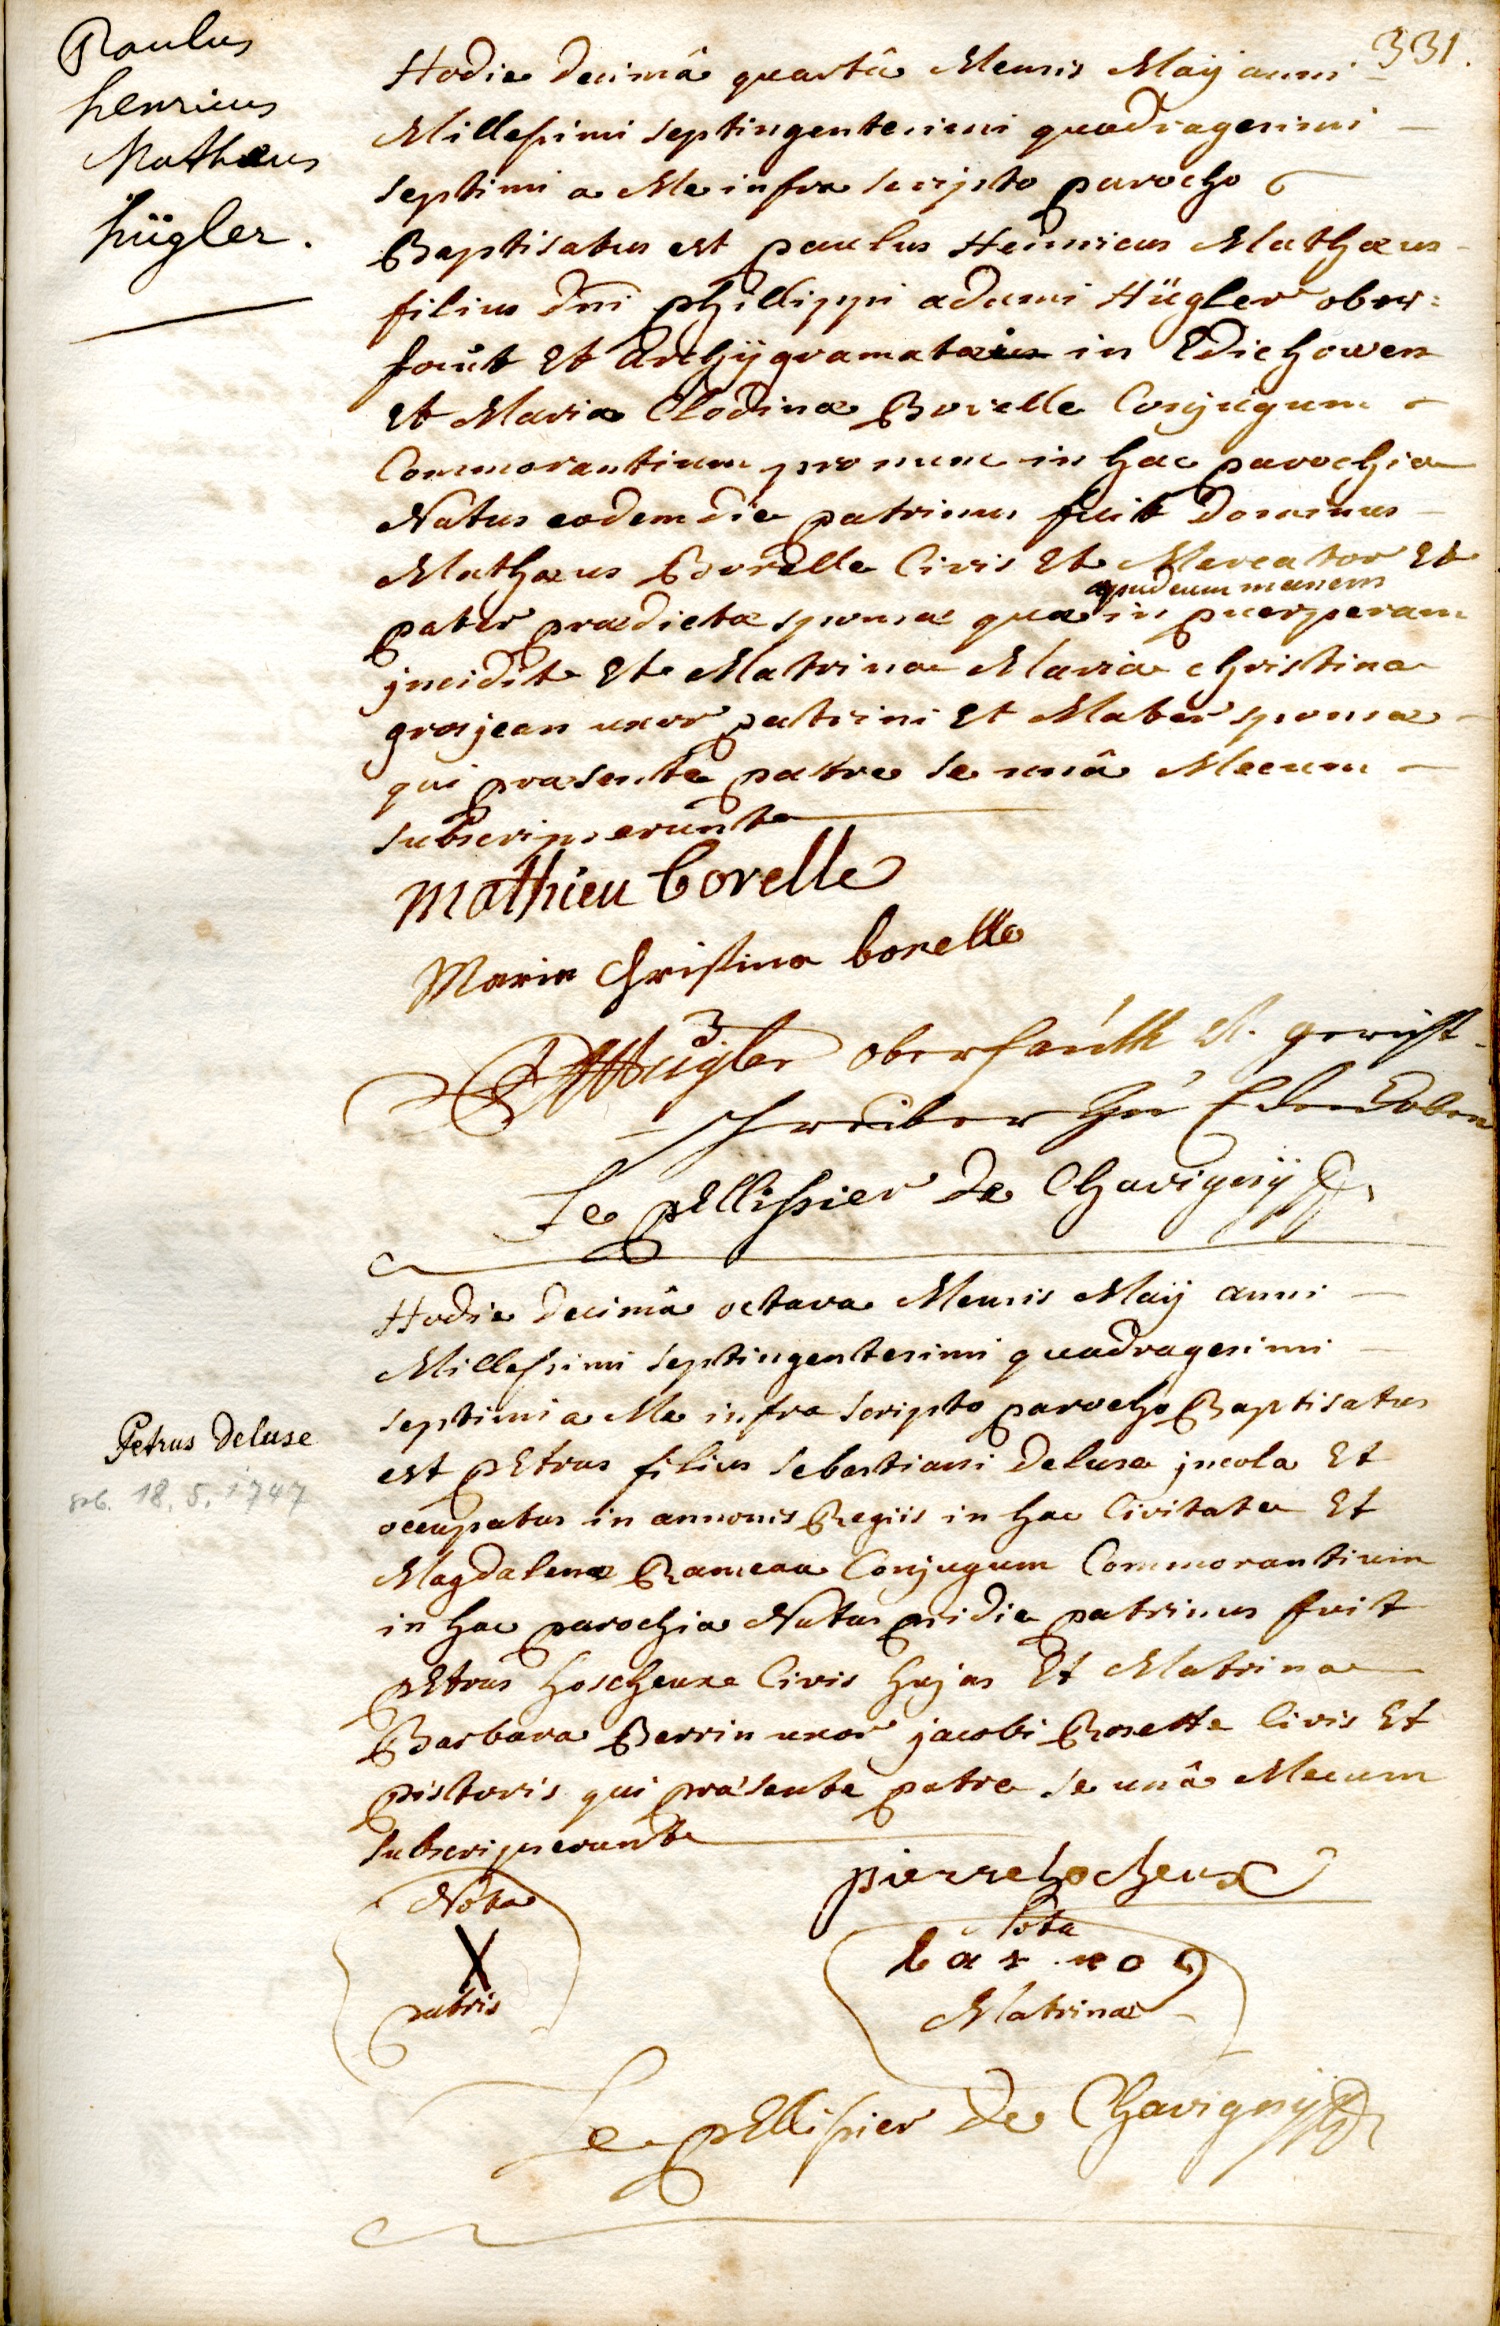 331.
Paulus
henricus
Mathæus
hügler.
Hodie decimâ quartâ Mensis Maij anni
Millesimi septingentesimi quadragesimi
septimi a Me infra scripto parocho
Baptisatus est paulus Heinricus Mathæus
filius dni phillippi adami Hügler ober:
faut Et Archÿgramatæus in Edichowen
et Mariæ Clodinæ Borelle Conjugum
Commorantium pro nunc in hac parochia
Natus eodem die patrinus fuit Dominus
Mathæus Borrelle Civis Et Mercator Et
apud eum manens
pater prædictæ sponsæ quæ in puerperam
jncidit Et Matrina Maria christina
grosjean uxor patrini Et Mater sponsæ
qui præsente patre se unâ Mecum
subscripserunt
Mathieu Borelle
Maria Christina borelle
Hügler oberfauth et. gericht-
schreiber zu Edenkoben
Le pEllissier De Chavignÿ
Hodie Decimâ octava Mensis Maij anni
Millesimi septingentesimi quadragesimi
septimi a Me infra scripto parocho Baptisatus
Petrus Deluse
geb. 18. 5. 1747
est pEtrus filius Sebastiani Deluse jncola Et
occupatus in annonis Regiis in hac Civitate Et
Magdalenæ Rameau Conjugum Commorantium
in hac parochia Natus pridie patrinus fuit
pEtrus hoscheuxe Civis hujas Et Matrina
Barbara Berrin uxor jacobi Rosette Civis Et
pistoris qui præsente patre se unâ Mecum
subscripserunt
pierre hocheux
Nota
X
patris
Nota
Matrinæ
Le pEllissier De Chavignÿ